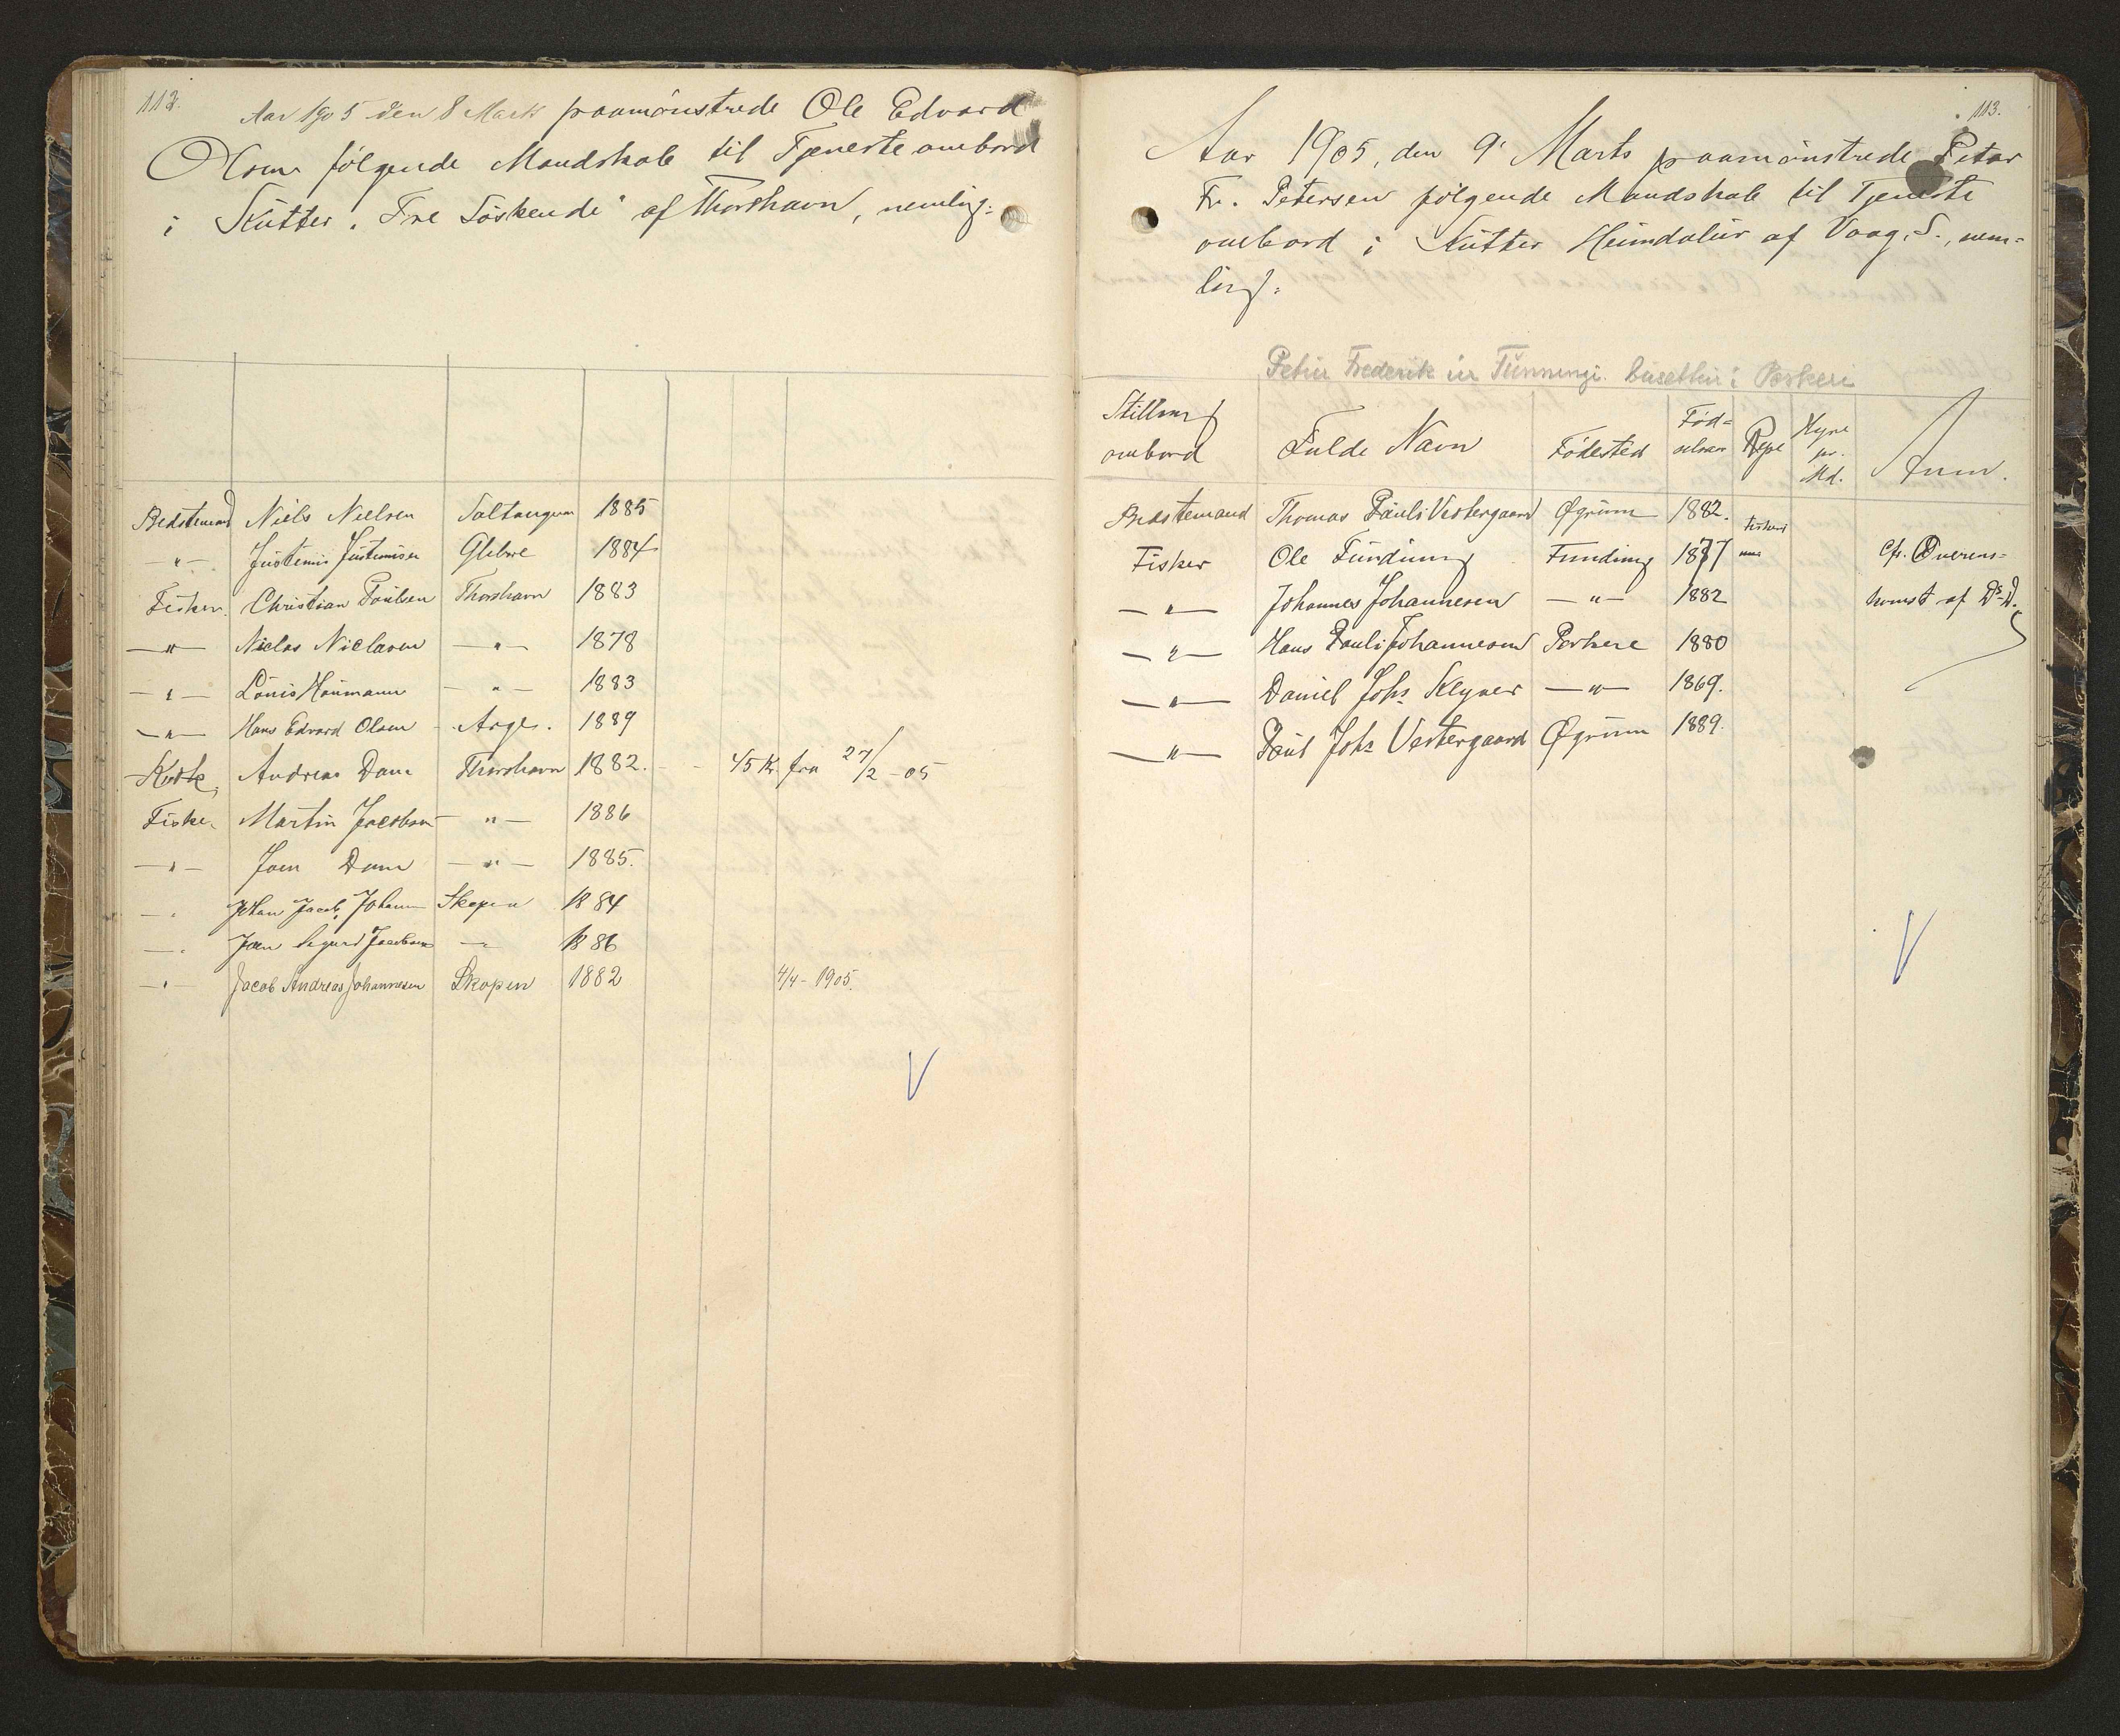 112.
Aar 1905 den 8 Marts paamönstrede Ole Edvard
Olsen følgende Mandskab til Tjeneste ombord
i Kutter "Tre Söskende" af Thorshavn, nemlig:
Bedstemand Niels Nielsen Saltangen 1885
-"- Justinus Justinusen Glibre 1884
Fisker Christian Poulsen Thorshavn 1883
-"- Niclas Niclasen -"- 1878
-"- Louis Houmann -"- 1883
-"- Hans Edvard Olsen Arge. 1889
Kok Andreas Dam Thorshavn 1882. - - 45 Kr. fra 27/2 -05
Fisker Martin Jacobsen -"- 1886
-"- Joen Dam -"- 1885.
-"- Johan Jacob Johannes Skopen 1884
-"- Joen Sigurd Jacobsen -"- 1886
-"- Jacob Andreas Johannesen Skopen 1882 4/4-1905.
V
113.
Aar 1905, den 9' Marts paamönstrede Peter
Fr. Petersen følgende Mandskab til Tjeneste
ombord i Kutter Heimdalur af Vaag. S., nem=
lig:
Petur Frederik úr Funningi. búsettur í Porkeri
Stilling ombord Fulde Navn Födested Föd=selsaar Hyre pr. Md. Anm.
Bedstemand Thomas Pauli Vestergaard Øgrum 1882.
Fisker Ole Funding Funding 1877 Cfr. Overens=
-"- Johannes Johannesen -"- 1882 komst af D.s D.
-"- Hans Pauli Johannesen Porkere 1880
-"- Daniel Johs. Kleyner -"- 1869.
-"- Poul Johs Vestergaard Øgrum 1889.
V